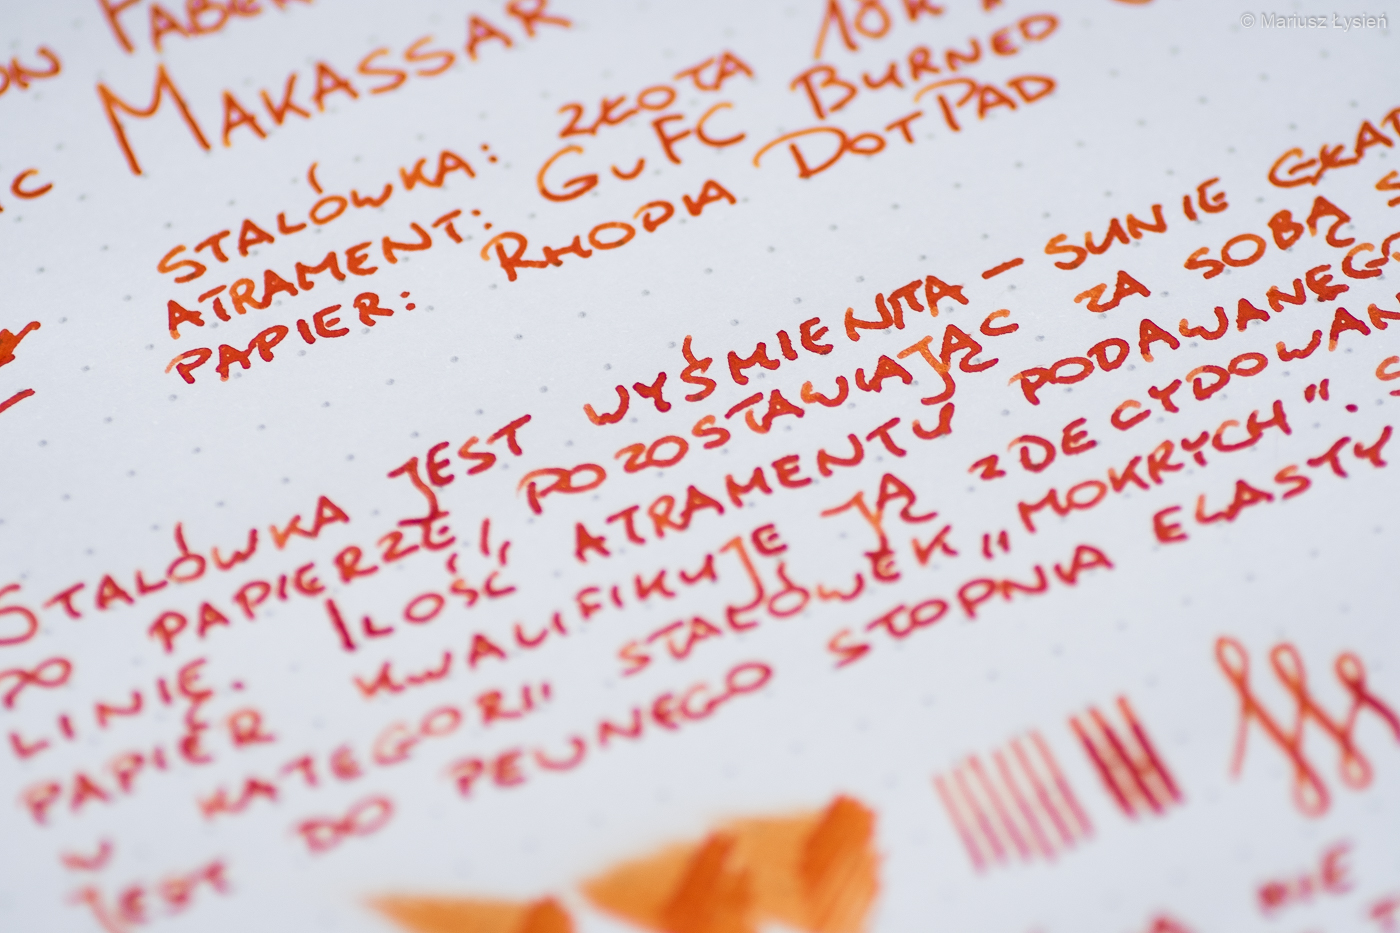 © Mariusz Łysień
FABER
MAKASSAR
STALÓWKA: ZŁOTA 18K
ATRAMENT: GvFC BURNED
PAPIER: RHODIA DOTPAD
STALÓWKA JEST WYŚMIENITA – SUNIE
PO PAPIERZE, POZOSTAWIAJĄC ZA SOBĄ
LINIĘ. ILOŚĆ ATRAMENTU PODAWANEGO
PAPIER KWALIFIKUJE JĄ ZDECYDOWANIE
KATEGORII STALÓWEK „MOKRYCH".
JEST DO PEWNEGO STOPNIA
NIE